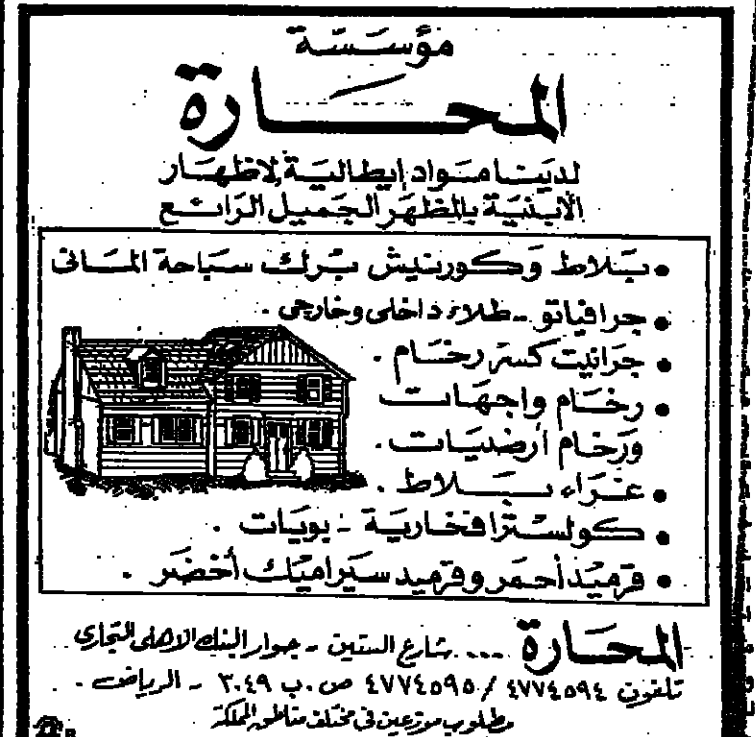 مؤسسة
المحارة
لدينا مواد إيطالية لاظهار
الأبنية بالمظهر الجميل الرائع
• بلاط وكورنيش برك سباحة المانى
• جرافياتو - طلاء داخلى وخارجى .
• جرانيت كسر رخام .
• رخام واجهات
ورخام أرضيات .
• غراء بلاط .
• كولسترا فخارية - بويات .
• قرميد أحمر وقرميد سيراميك أخضر .
المحارة ... شارع الستين - جوار البنك الاهلى التجارى
تلفون ٤٧٧٤٥٩٤ / ٤٧٧٤٥٩٥ ص . ب ٣٠٤٩ - الرياض .
مطلوب موزعين في مختلف مناطق المملكة